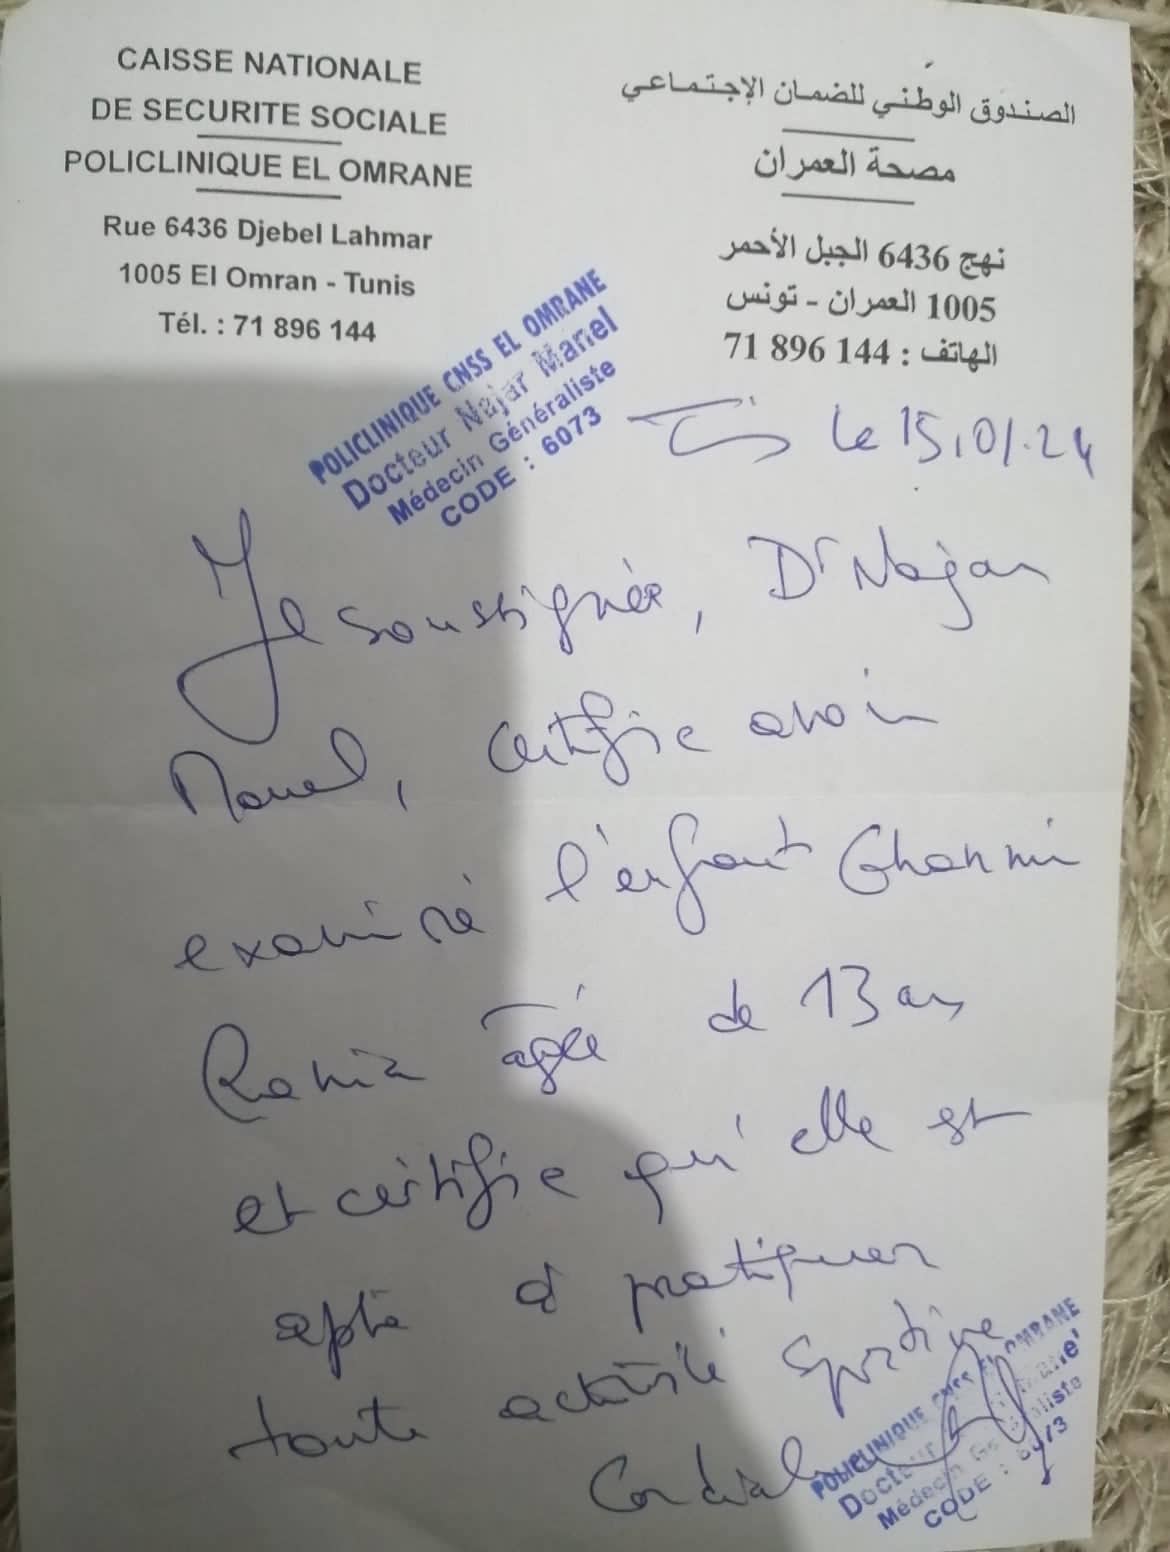 CAISSE NATIONALE
DE SECURITE SOCIALE
POLICLINIQUE EL OMRANE
Rue 6436 Djebel Lahmar
1005 El Omran - Tunis
Tél. : 71 896 144
الصندوق الوطني للضمان الإجتماعي
مصحة العمران
نهج 6436 الجبل الأحمر
1005 العمران - تونس
الهاتف : 144 896 71
POLICLINIQUE CNSS EL OMRANE
Docteur Najar Manel
Médecin Généraliste
CODE : 6073
le 15.01.24
Je soussignée, Dr Najar
Manel, certifie avoir
examiné l'enfant Ghanmi
Rania âgée de 13 ans
et certifie qu'elle est
apte à pratiquer
toute activité sportive
POLICLINIQUE CNSS EL OMRANE
Docteur
Médecin Généraliste
CODE : 6073